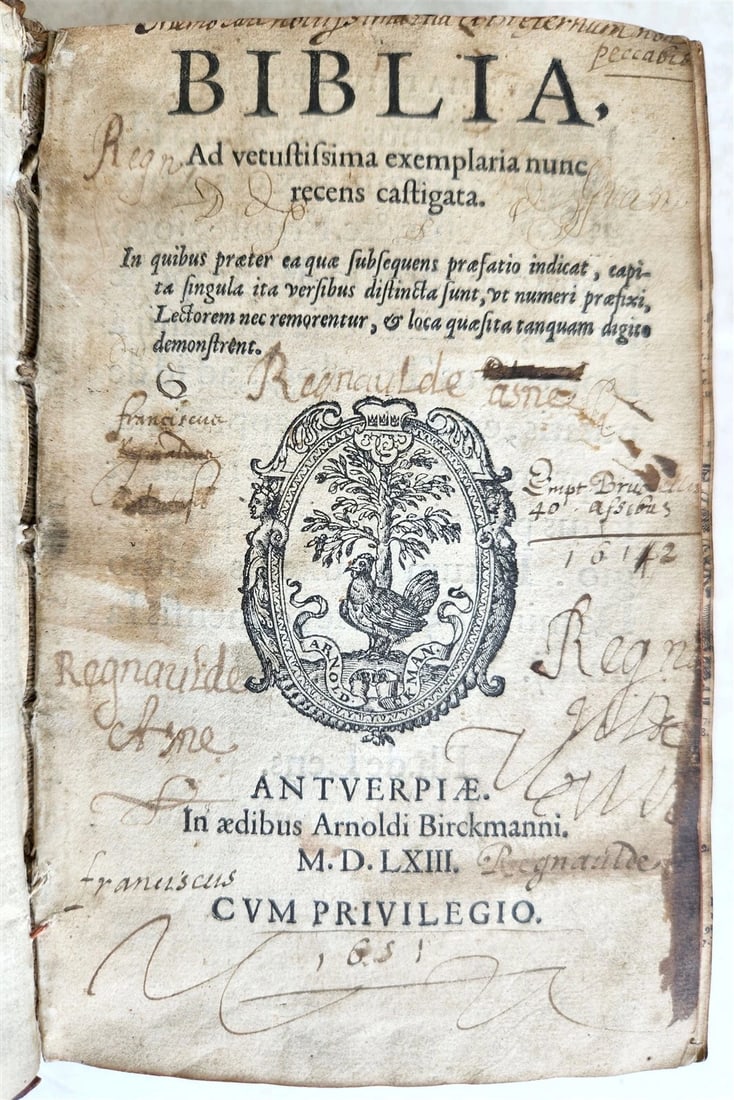 in æternum non
peccabis
BIBLIA,
Regn
Ad vetuſtiſsima exemplaria nunc
recens caſtigata.
In quibus præter ea quæ ſubſequens præfatio indicat, capi-
ta ſingula ita verſibus diſtincta ſunt, vt numeri præfixi,
Lectorem nec remorentur, & loca quæſita tanquam digito
demonſtrēnt.
Regnaulde
asne
franciscus
Empt
40 aſsibus
ARNOLD. BIR KMAN
Regna
Regnaulde
Asne
ANTVERPIÆ.
In ædibus Arnoldi Birckmanni.
M. D. LXIII.
Regnaulde
franciscus
CVM PRIVILEGIO.
1651